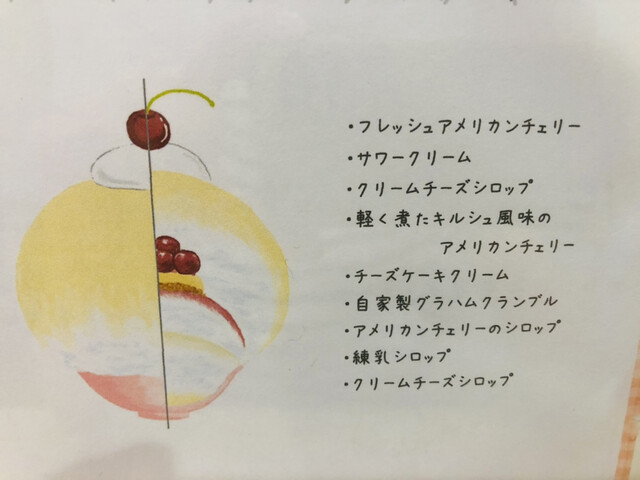 ・フレッシュアメリカンチェリー
・サワークリーム
・クリームチーズシロップ
・軽く煮たキルシュ風味の
アメリカンチェリー
・チーズケーキクリーム
・自家製グラハムクランブル
・アメリカンチェリーのシロップ
・練乳シロップ
・クリームチーズシロップ